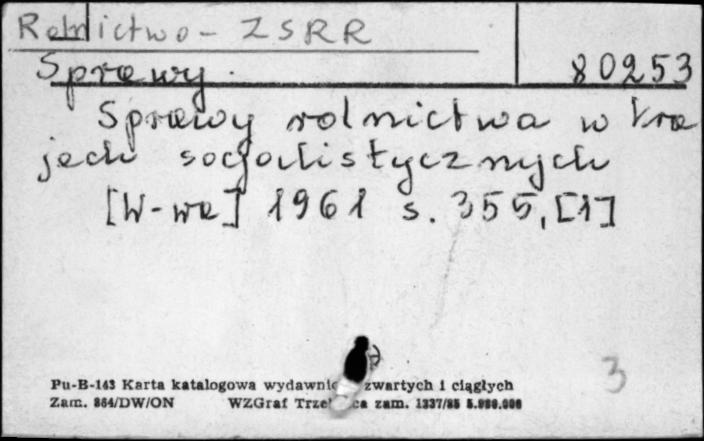 Rolnictwo - ZSRR
Sprawy. 80253
Sprawy rolnictwa w kra
jach socjalistycznych
[W-wa] 1961 s. 355, [1]
3
Pu-B-143 Karta katalogowa zwartych i ciągłych
Zam. 864/DW/ON WZGraf zam. 1337/85